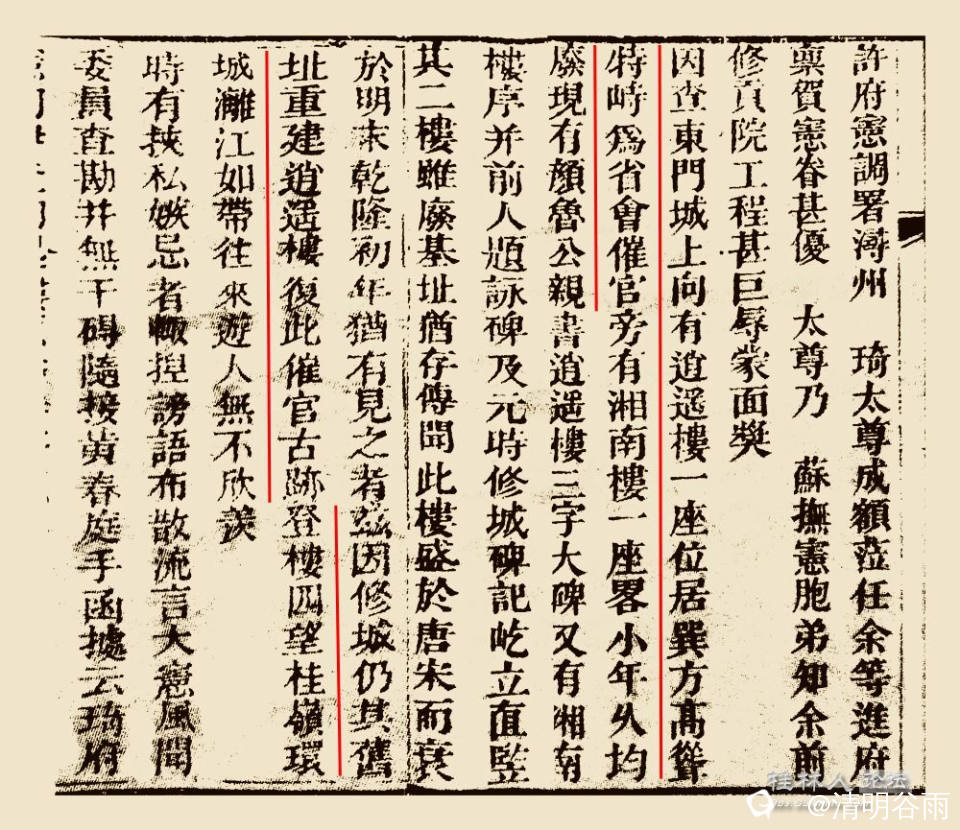 許府憲調署潯州 琦太尊成額蒞任余等進府
稟賀憲眷甚優 太尊乃 蘇撫憲胞弟知余前
修貢院工程甚巨辱蒙面奬
因查東門城上向有逍遥樓一座位居巽方高聳
特峙爲省會催官旁有湘南樓一座畧小年久均
廢現有顔魯公親書逍遥樓三字大碑又有湘南
樓序并前人題詠碑及元時修城碑記屹立直監
其二樓雖廢基址猶存傳聞此樓盛於唐宋而衰
於明末乾隆初年猶有見之者兹因修城仍其舊
址重建逍遥樓復此催官古跡登樓四望桂嶺環
城灕江如帶往來遊人無不欣羨
時有挾私嫉忌者輙揑謗語布散流言大憲風聞
委員查勘并無干碍隨接黄春庭手函據云琦府
桂林人论坛
@清明谷雨